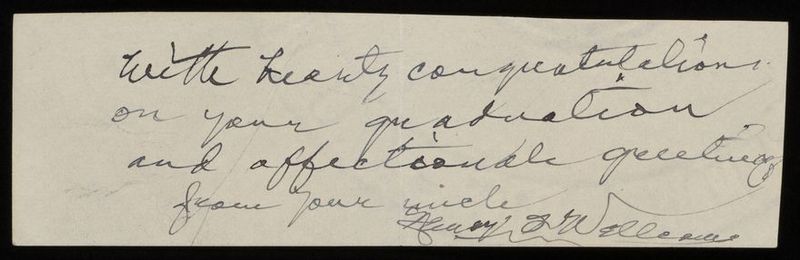 With hearty congratulations
on your graduation
and affectionate greetings
from your uncle
Henry S Wellcome